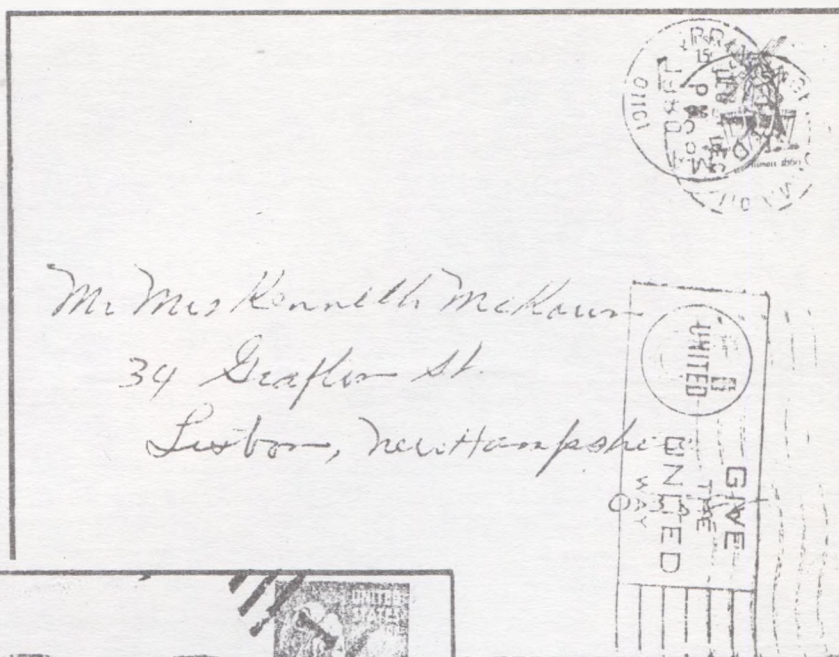 PM
1980
DEC
Mr Mrs Kenneth McKown
34 Grafton St.
Lisbon, New Hampshi
UNITED
GIVE
THE
UNITED
WAY
UNITED
STATES